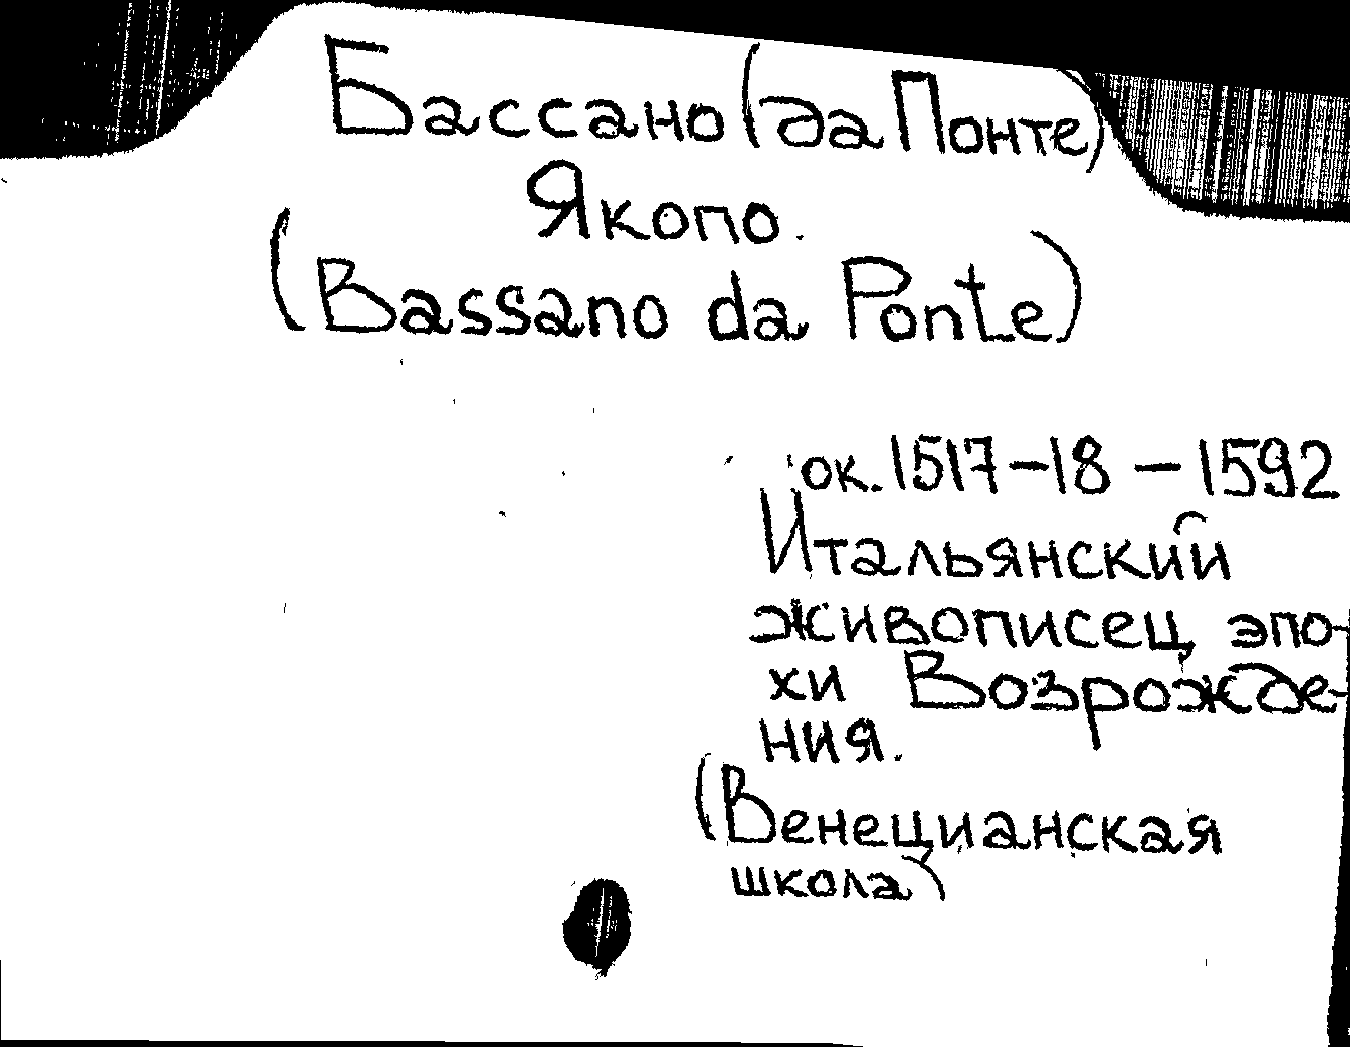 Бассано (да Понте)
Якопо.
(Bassano da Ponte)
ок. 1517-18 - 1592
Итальянский
живописец эпо-
хи Возрожде-
ния.
(Венецианская
школа)